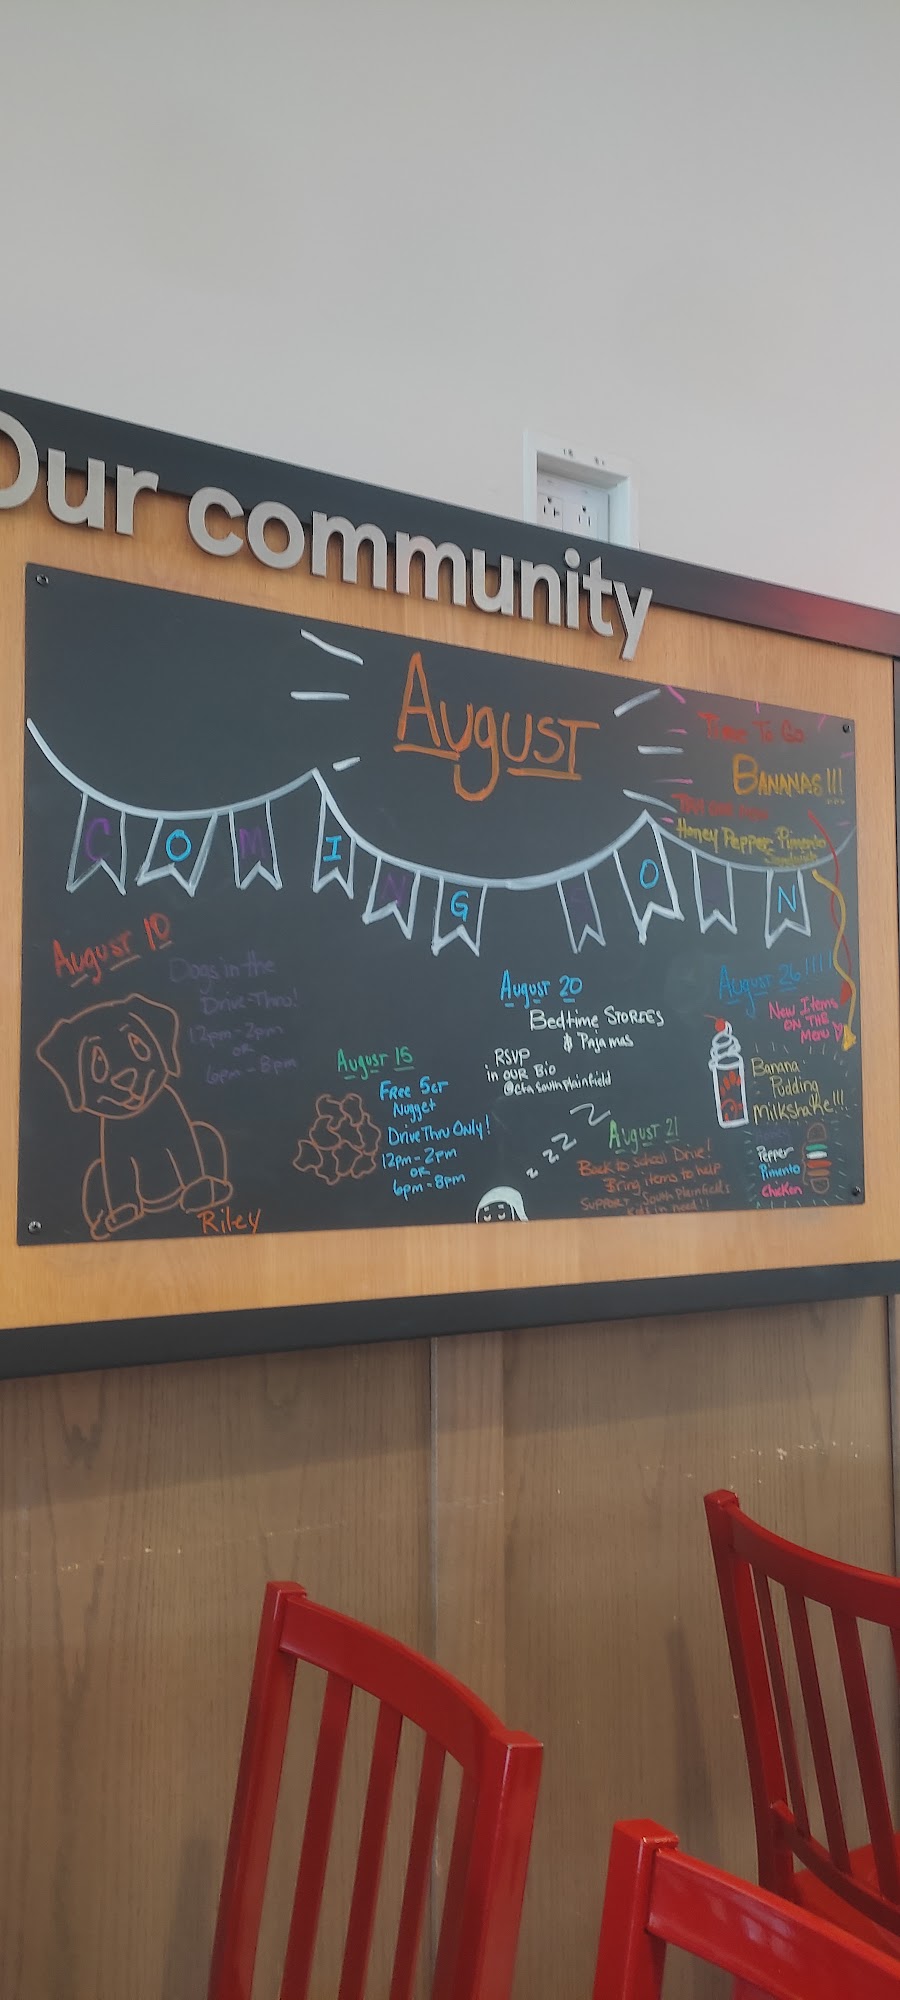 Our community
August
COMING SOON
Time To Go
BANANAS!!!
Honey Pepper Pimento
Sandwich
August 10
Dogs in the
Drive-Thru!
12pm-2pm
OR
6pm-8pm
Riley
August 15
Free 5ct
Nugget
Drive Thru Only!
12pm-2pm
OR
6pm-8pm
August 20
Bedtime STORIES
& Pajamas
RSVP
in OUR Bio
@cfasouthplainfield
zzzz
August 21
Back to School Drive!
Bring items to help
SUPPORT South Plainfield's
kids in need!!
August 26!!!!
New Items
ON THE
Menu
Banana
Pudding
Milkshake!!!
Pepper
Pimento
Chicken